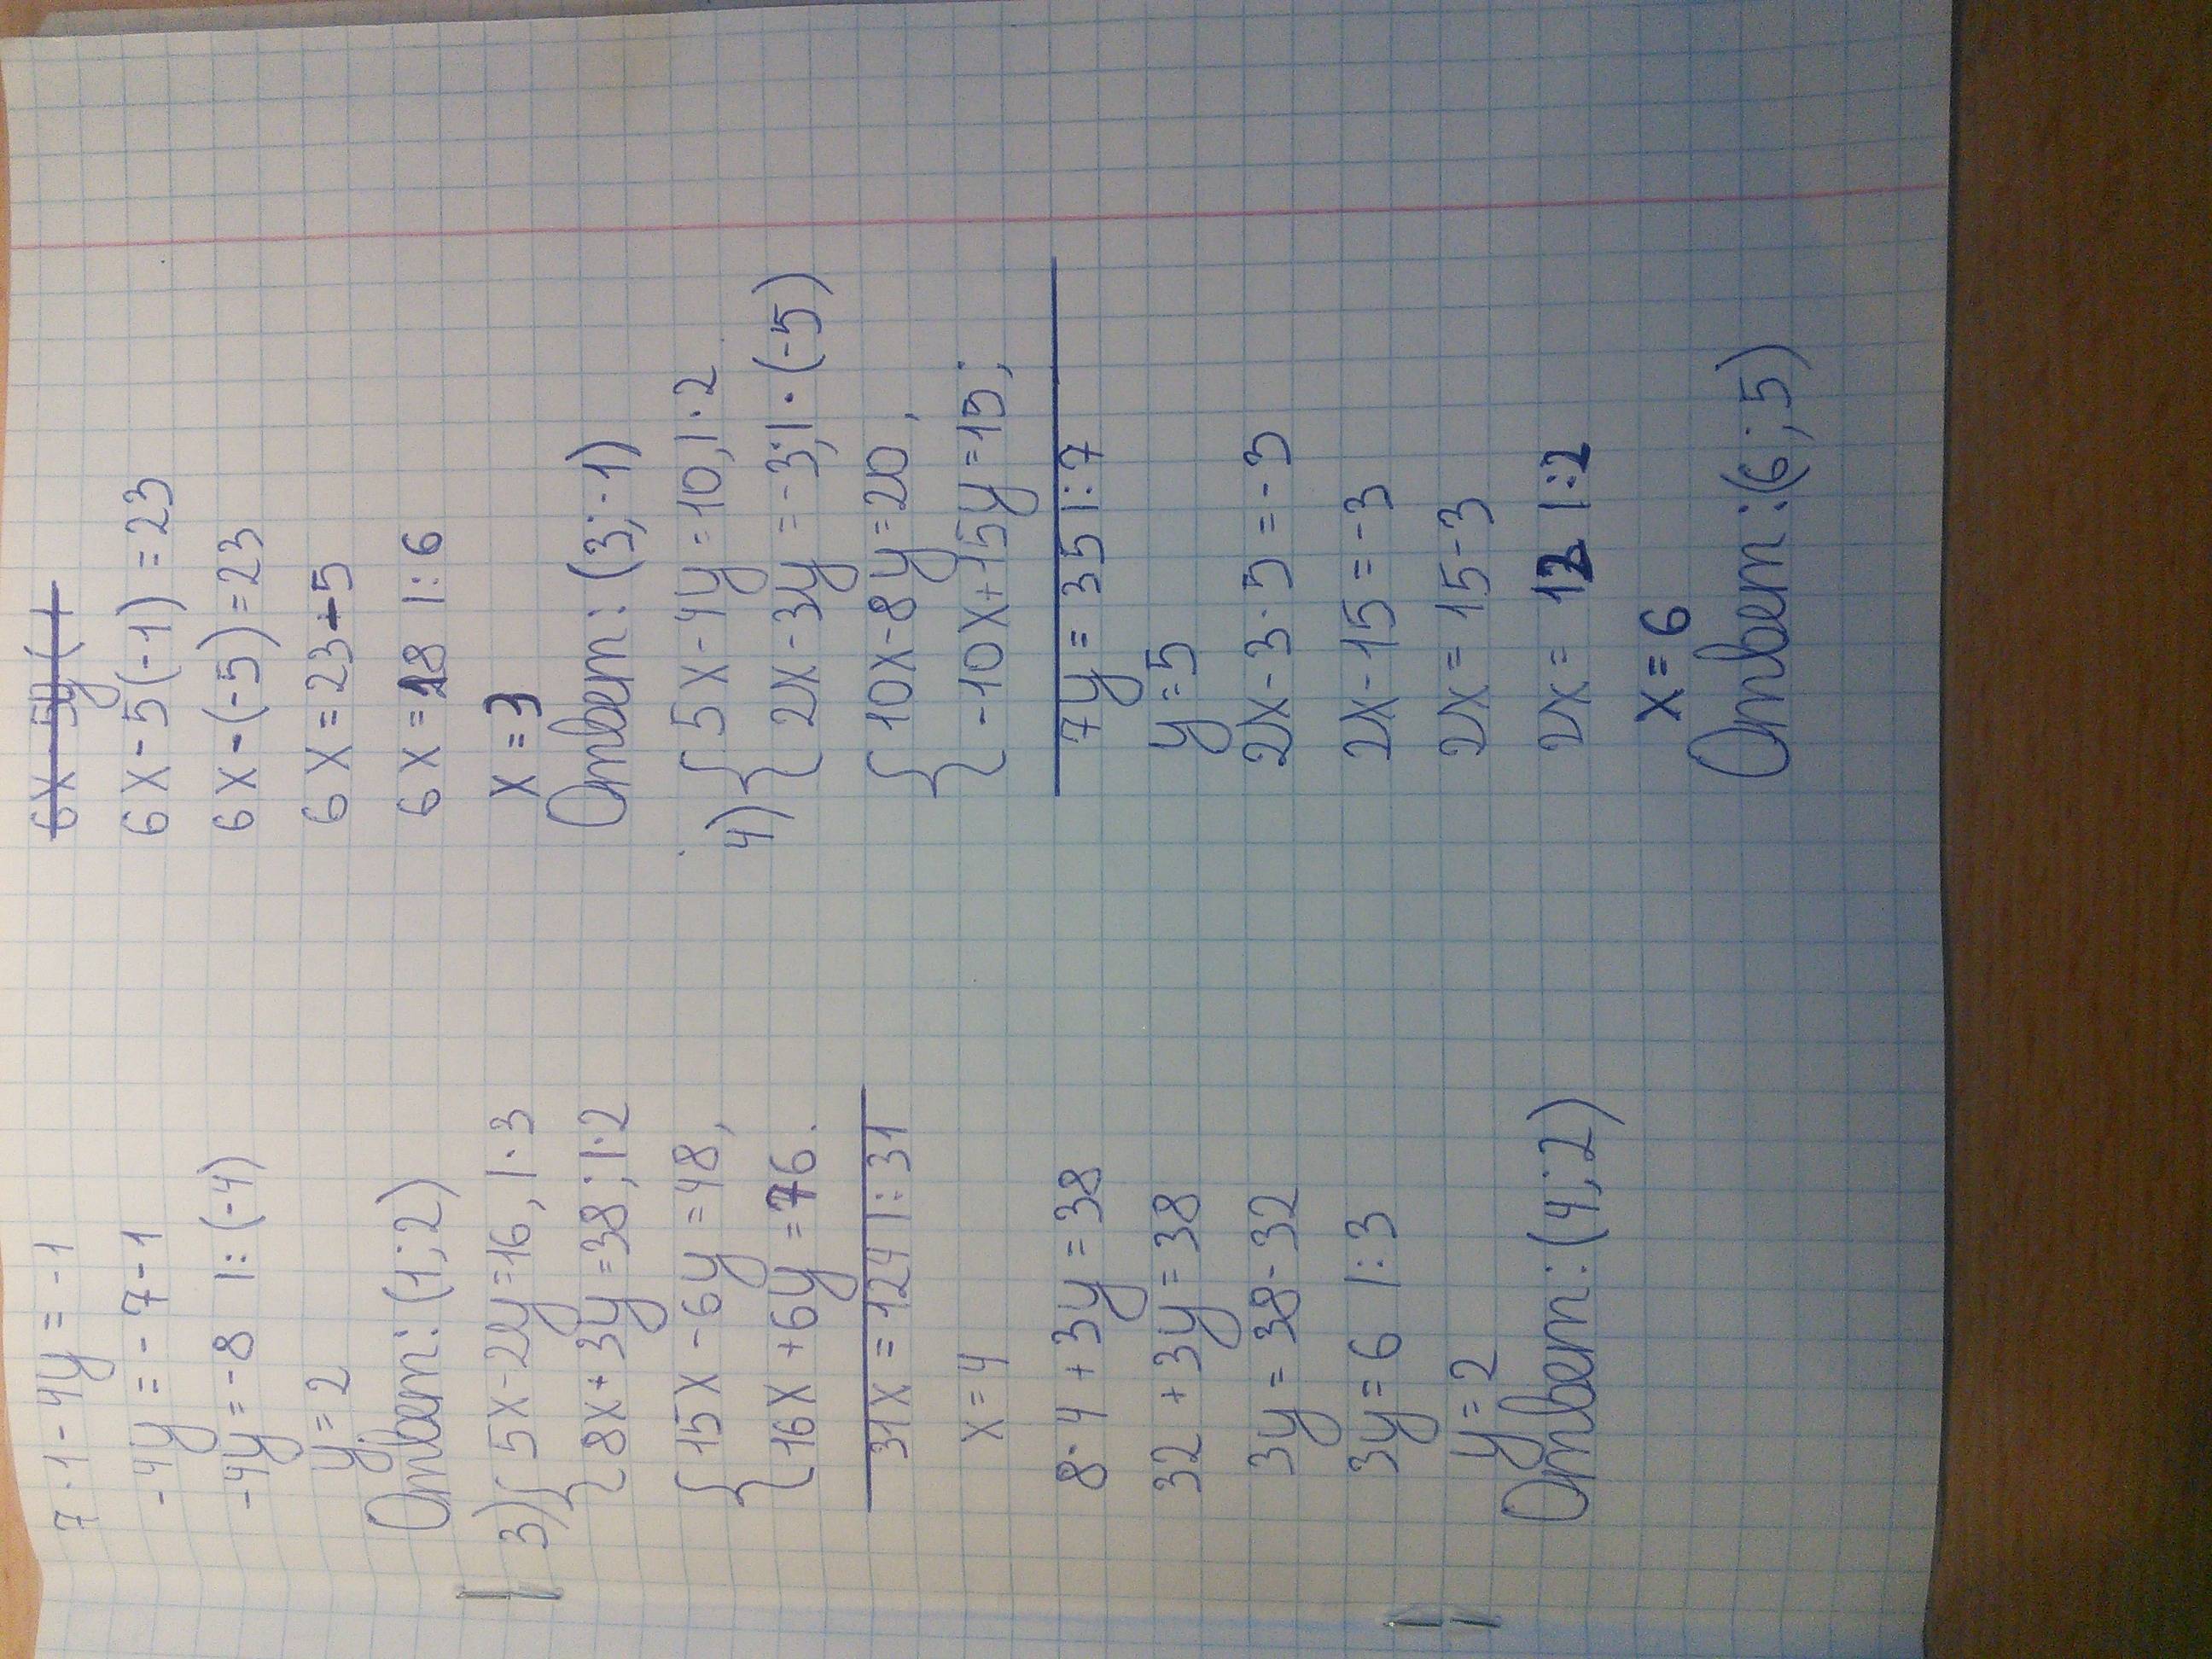 7·1-4y=-1
-4y=-7-1
-4y=-8 |:(-4)
y=2
Ответ: (1;2)
3) { 5x-2y=16, |·3
8x+3y=38; |·2
{ 15x-6y=48,
16x+6y=76.
31x=124 |:31
x=4
8·4+3y=38
32+3y=38
3y=38-32
3y=6 |:3
y=2
Ответ: (4;2)
6x-5y(
6x-5(-1)=23
6x-(-5)=23
6x=23-5
6x=18 |:6
x=3
Ответ: (3;-1)
4) { 5x-4y=10, |·2
2x-3y=-3; |·(-5)
{ 10x-8y=20,
-10x+15y=15;
7y=35 |:7
y=5
2x-3·5=-3
2x-15=-3
2x=15-3
2x=12 |:2
x=6
Ответ: (6;5)